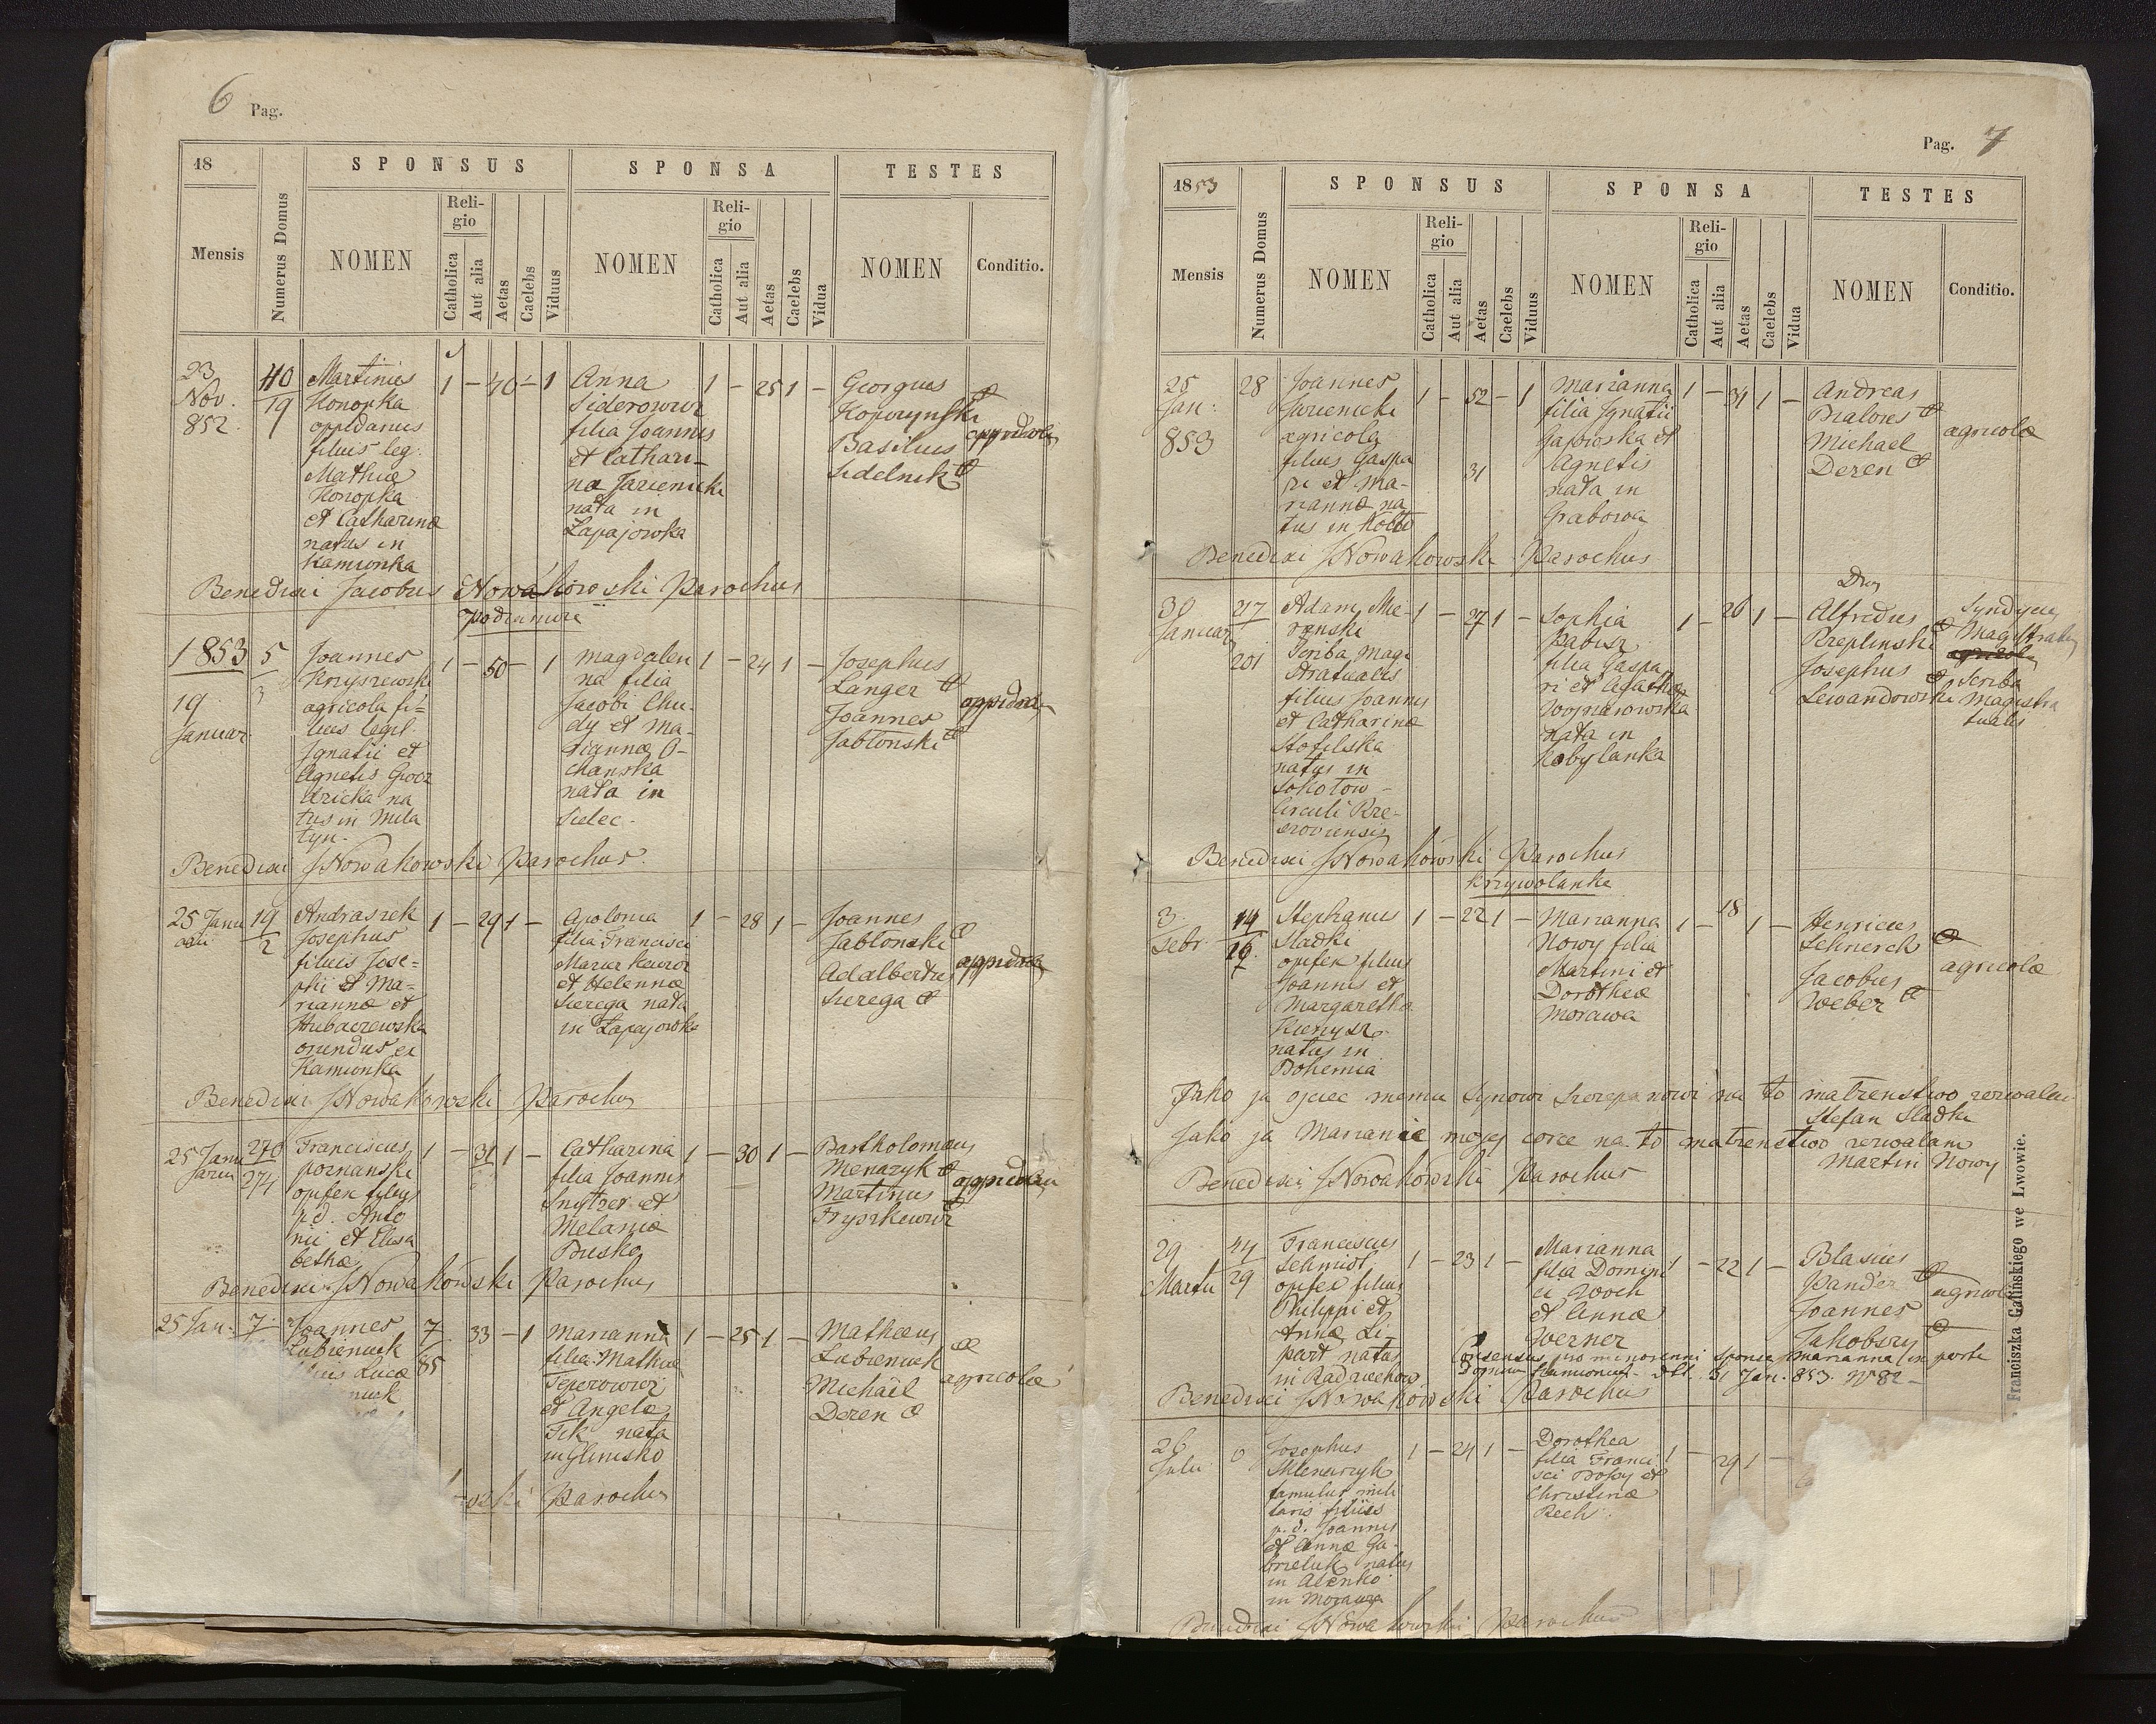 6 Pag.
18
SPONSUS
SPONSA
TESTES
Mensis
Numerus Domus
NOMEN
Religio
Catholica
Aut alia
Aetas
Caelebs
Viduus
NOMEN
Religio
Catholica
Aut alia
Aetas
Caelebs
Vidua
NOMEN
Conditio.
23
Nov.
852.
40
19
Martinus
Konopka
oppidanus
filius leg.
Mathiæ
Konopka
et Catharinæ
natus in
Kamionka
1 – 40 – 1
Anna
Siderowicz
filia Joannis
et Cathari-
næ Jazienicki
nata in
Łapajowka
1 – 25 1 –
Georgius
Kopczynski
Basilius
Sidelnik
oppidani
Benedixi Jacobus Nowakowski Parochus
Podzamcze
1853
19
Januar
5
3
Joannes
Krzyszewski
agricola fi=
lius legit.
Ignatii et
Agnetis Gwoz
dzicka na
tus in Mila
tyn.
1 – 50 – 1
Magdalen
na filia
Jacobi Chu-
dy et Ma-
riannæ O-
chanska
nata in
Sielec.
1 – 24 1 –
Josephus
Langer
Joannes
Jabłonski
oppidani
Benedixi JNowakowski Parochus.
25 Janu
arii
19
2
Andraszek
Josephus
filius Jose=
phi et Ma-
riannæ et
Hubaczewska
oriundus ex
Kamionka
1 – 29 1 –
Apolonia
filia Francisci
Mazurkewicz
et Helennæ
Szerega nata
in Łapajowka
1 – 28 1 –
Joannes
Jabłonski
Adalbertus
Szerega
oppidani
Benedixi JNowakowski Parochus
25 Janu
Jarii
270
271
Franciscus
Poznanski
opifex filius
p.d. Anto
nii et Elisa
bethæ
1 – 31 1 –
Catharina
filia Joannis
Snytzer et
Melaniæ
Busko
1 – 30 1 –
Bartholomæus
Menazyk
Martinus
Fryszkewicz
oppidani
Benedixi JNowakowski Parochus
25 Jan.
7
85
Joannes
Lubieniuk
filius Lucæ
7 – 33 – 1
Marianna
filia Mathiæ
Teperowicz
et Angelæ
Fik nata
in Glinisko
1 – 25 1 –
Mathæus
Lubieniuk
Michaël
Deren
agricolæ
Parochus
Pag. 7
1853
SPONSUS
SPONSA
TESTES
Mensis
Numerus Domus
NOMEN
Religio
Catholica
Aut alia
Aetas
Caelebs
Viduus
NOMEN
Religio
Catholica
Aut alia
Aetas
Caelebs
Vidua
NOMEN
Conditio.
25
Jan.
853
28
Joannes
Jazienicki
agricola
filius Gaspa
ri et Ma-
riannæ na
tus in
1 – 52 – 1
31
Marianna
filia Ignatii
Gajowska et
Agnetis
nata in
Grabowa
1 – 31 1 –
Andreas
Białows
Michael
Deren
agricolæ
Benedixi JNowakowski Parochus
30
Januar
217
201
Adam Mie-
renski
Scriba Magi
stratualis
filius Joannis
et Catharinæ
Stofelska
natus in
Sokołow –
Circuli Rze-
szoviensis
1 – 27 1 –
Sophia
Pabisz
filia Gaspa
ri et Agathæ
Woynarowska
nata in
Kobylanka
1 – 26 1 –
Alfredus
Rzeplinski
Josephus
Lewandowski
Syndycus
Magistratus
Scriba
Magistra
tualis
Benedixi JNowakowski Parochus
Krzywolanka
3
Febr.
14
16
Stephanus
Sladki
opifex filius
Joannis et
Margaretha
natus in
Bohemia
1 – 22 1 –
Marianna
Nowy filia
Martini et
Dorotheæ
Morawa
1 – 18 1 –
Henricus
Schnerch
Jacobus
Weber
agricolæ
Jako ja ojciec memu synowi Szczepanowi na to małzenstwo zezwalam
Stefan Sladki
Jako ja Mariannie mojej corce na to małzenstwo zezwalam
Martin Nowy
Benedixi JNowakowski Parochus
29
Martii
44
29
Franciscus
Schmidt
opifex filius
Philippi et
Annæ Li-
part natus
in Radziechow
1 – 23 1 –
Marianna
filia Domini
ci Woch
et Annæ
Werner
1 – 22 1 –
Blasius
Pander
Joannes
Jakobszy
agricolæ
Consensus pro minorenni sponsa Marianna in parte
Dominii Kamionens. dtt. 31 Jan. 853. N 82 –
Benedixi JNowakowski Parochus
26
Julii
0
Josephus
Mlenarzyk
famulus mili
taris filius
p.d. Joannis
et Annæ Ga-
brieluk natus
in Alenko
in Moravia
1 – 24 1 –
Dorothea
filia Franci
sci Dolby et
Christinæ
Pech.
1 – 29 1 –
Benedixi JNowakowski Parochus
Franciszka Galińskiego we Lwowie.